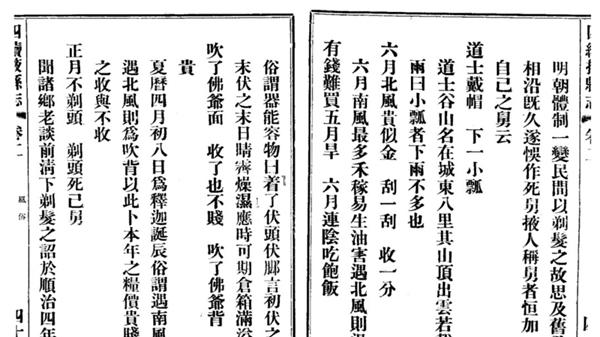 明朝體制一變民間以剃髮之故思及舊
相沿旣久遂悞作死舅掖人稱舅者恒加
自己之舅云
道士戴帽 下一小瓢
道士谷山名在城東八里其山頂出雲若
雨曰小瓢者下雨不多也
六月北風貴似金 刮一刮 收一分
六月南風最多禾稼易生油害遇北風則
有錢難買五月旱 六月連陰吃飽飯
俗謂器能容物曰着了伏頭伏腳言初伏之
末伏之末日晴霽燥濕應時可期倉箱滿
吹了佛爺面 收了也不賤 吹了佛爺背
貴
夏曆四月初八日爲釋迦誕辰俗謂遇南風
遇北風則爲吹背以此卜本年之糧價貴賤
之收與不收
正月不剃頭 剃頭死己舅
聞諸鄉老談前淸下剃髮之詔於順治四年
四續掖縣志 卷二 風俗 四十